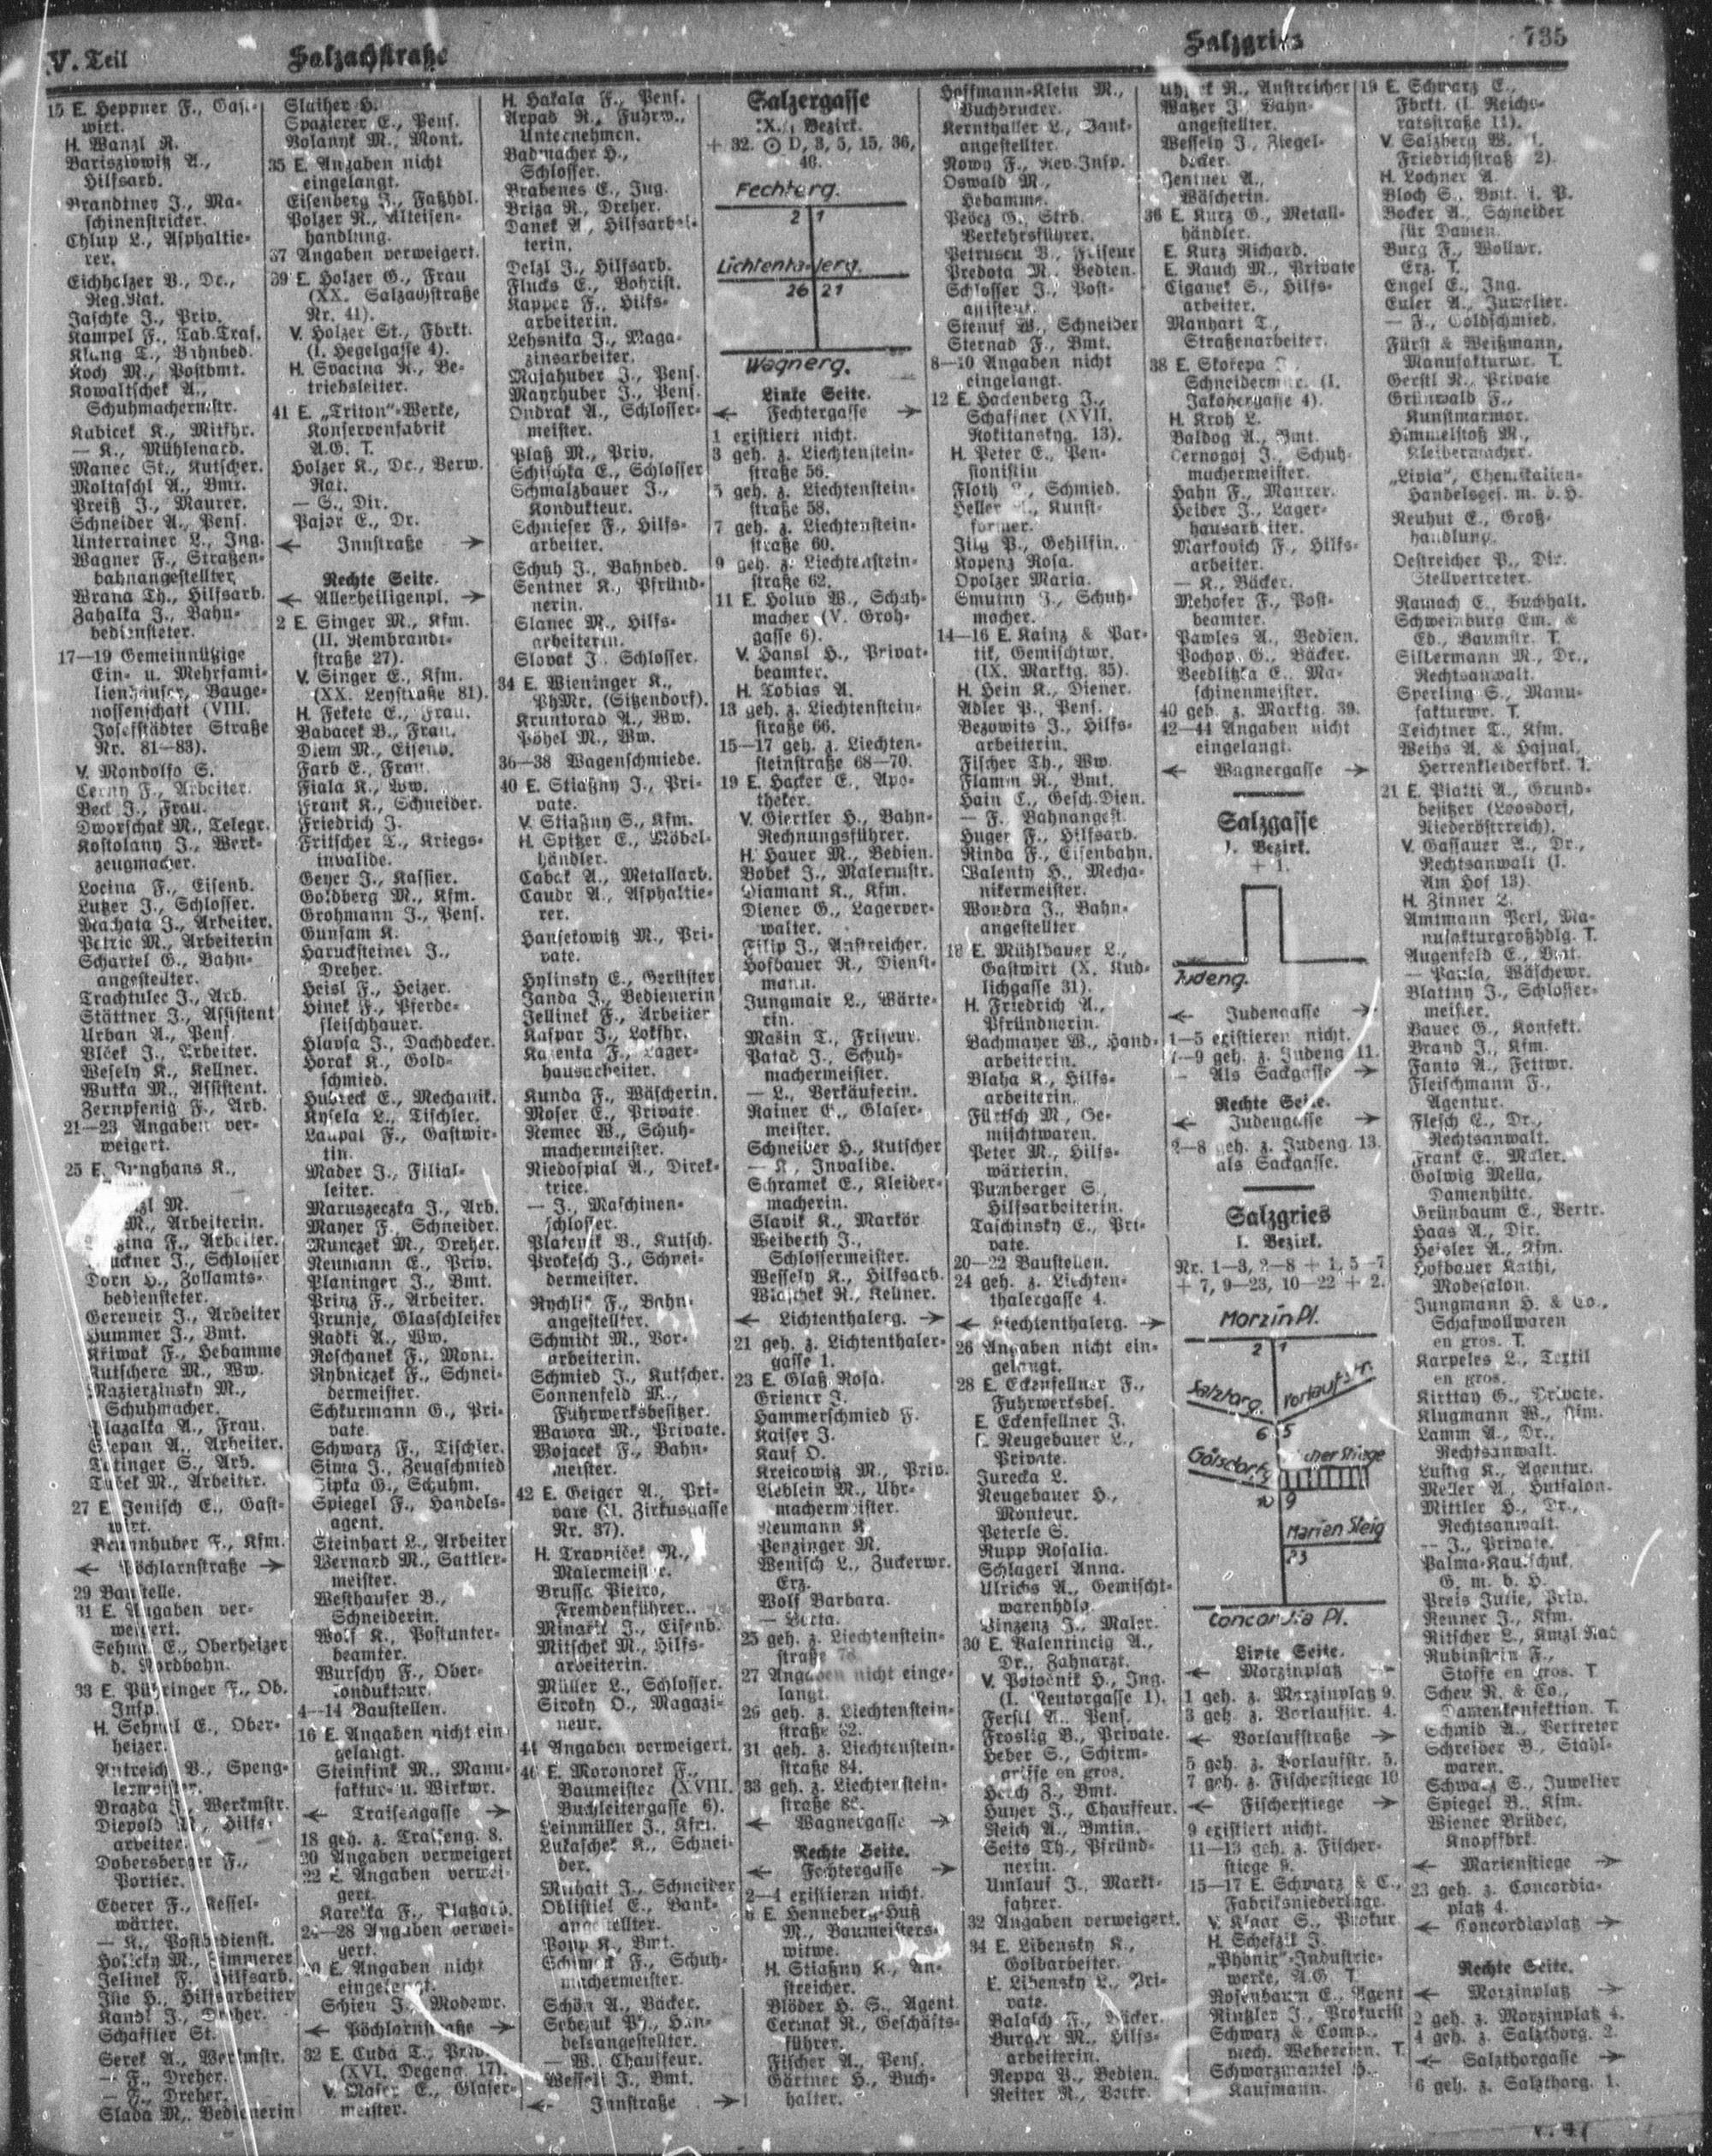 V. Teil
Salzachstraße
Salzgries
735
15 E. Heppner F., Gast-
wirt.
H. Wanzl R.
Bariszlowitz A.,
Hilfsarb.
Brandtner J., Ma-
schinenstricker.
Chlup L., Asphaltie-
rer.
Eichholzer V., Dr.,
Reg.Rat.
Jaschke J., Priv.
Kampel F., Tab.Traf.
Klang T., Bahnbed.
Koch M., Postbmt.
Kowaltschek A.,
Schuhmachermstr.
Kubicek K., Mitfhr.
— K., Mühlenard.
Manec St., Kutscher.
Moltaschl A., Bmt.
Preiß J., Maurer.
Schneider A., Pens.
Unterrainer L., Ing.
Wagner F., Straßen-
bahnangestellter.
Wrana Th., Hilfsarb.
Zahalka J., Bahn-
bediensteter.
17—19 Gemeinnützige
Ein- u. Mehrfami-
lienhäuser, Bauge-
nossenschaft (VIII.
Josefstädter Straße
Nr. 81—83).
V. Mondolfo S.
Cerny F., Arbeiter.
Beck J., Frau.
Dworschak M., Telegr.
Kostolany J., Werk-
zeugmacher.
Locina F., Eisenb.
Lutzer J., Schlosser.
Machata J., Arbeiter.
Petric M., Arbeiterin
Schartel G., Bahn-
angestellter.
Trachtulec J., Arb.
Stättner J., Assistent
Urban A., Pens.
Vlček J., Arbeiter.
Wesely K., Kellner.
Wutka M., Assistent.
Zernpfenig F., Arb.
21—23 Angaben ver-
weigert.
25 E. Junghans K.,
M., Arbeiterin.
F., Arbeiter.
J., Schlosser
Dorn H., Zollamts-
bediensteter.
Gereneir J., Arbeiter
Hummer J., Bmt.
Kriwak F., Hebamme
Kutschera M., Ww.
Mazierzinsky M.,
Schuhmacher.
Plazalka A., Frau.
Stepan A., Arbeiter.
Totinger S., Arb.
Tucek M., Arbeiter.
27 E. Jenisch E., Gast-
wirt.
Braunhuber F., Kfm.
← Pöchlarnstraße →
29 Baustelle.
31 E. Angaben ver-
weigert.
Sehnal E., Oberheizer
d. Nordbahn.
33 E. Pühringer F., Ob.
Insp.
H. Sehnal E., Ober-
heizer.
Antreich V., Speng-
lermeister.
Brazda J., Werkmstr.
Diepold, Hilfs-
arbeiter.
Dobersberger F.,
Portier.
Eberer F., Kessel-
wärter.
— K., Postbedienst.
Holicky M., Zimmerer
Jelinek F., Hilfsarb.
Jlie H., Hilfsarbeiter
Kandl J., Dreher.
Schaffler St.
Serek A., Werkmstr.
— F., Dreher.
— F., Dreher.
Slada M., Bedienerin
Slather H.
Spazierer E., Pens.
Volanyk M., Mont.
35 E. Angaben nicht
eingelangt.
Eisenberg J., Faßhdl.
Polzer R., Alteisen-
handlung.
37 Angaben verweigert.
39 E. Holzer G., Frau
(XX. Salzachstraße
Nr. 41).
V. Holzer St., Fbrkt.
(I. Hegelgasse 4).
H. Svacina R., Be-
triebsleiter.
41 E. „Triton“-Werke,
Konservenfabrik
A.G. T.
Holzer K., Dr., Verw.
Rat.
— S., Dir.
Pajor E., Dr.
← Innstraße →
Rechte Seite.
← Allerheiligenpl. →
2 E. Singer M., Kfm.
(II. Rembrandt-
straße 27).
V. Singer E., Kfm.
(XX. Leystraße 81).
H. Fekete E., Frau.
Babacek B., Frau.
Diem M., Eisenb.
Farb E., Frau.
Fiala K., Ww.
Frank K., Schneider.
Friedrich J.
Fritscher T., Kriegs-
invalide.
Geyer J., Kassier.
Goldberg M., Kfm.
Grohmann J., Pens.
Gunsam K.
Harucksteiner J.,
Dreher.
Heisl F., Heizer.
Hinek F., Pferde-
fleischhauer.
Hlavsa J., Dachdecker.
Horak K., Gold-
schmied.
Hubreck E., Mechanik.
Kysela L., Tischler.
Laupal F., Gastwir-
tin.
Mader J., Filial-
leiter.
Maruszeczka J., Arb.
Mayer F., Schneider.
Munczek M., Dreher.
Neumann E., Priv.
Planinger J., Bmt.
Prinz F., Arbeiter.
Prunje, Glasschleifer
Radki A., Ww.
Roschanek F., Mont.
Rybniczek F., Schnei-
dermeister.
Schkurmann G., Pri-
vate.
Schwarz F., Tischler.
Sima J., Zeugschmied
Sipka G., Schuhm.
Spiegel F., Handels-
agent.
Steinhart L., Arbeiter
Vernard M., Sattler-
meister.
Westhauser B.,
Schneiderin.
Wolf K., Postunter-
beamter.
Wurschy F., Ober-
kondukteur.
4—14 Baustellen.
16 E. Angaben nicht ein
gelangt.
Steinfink M., Manu-
faktur- u. Wirkwr.
← Traisengasse →
18 geh. z. Traiseng. 8.
20 Angaben verweigert
22 E. Angaben verwei-
gert.
Karetka F., Platzarb.
24—28 Angaben verwei-
gert.
30 E. Angaben nicht
eingelangt.
Schien J., Modewr.
← Pöchlarnstraße →
32 E. Cuda T., Priv.
(XVI. Degeng. 17).
V. Maser E., Glaser-
meister.
H. Hakala F., Pens.
Arpad R., Fuhrw.,
Unternehmen.
Badmacher H.,
Schlosser.
Brabenes E., Ing.
Briza R., Dreher.
Danek A., Hilfsarbei-
terin.
Delzl J., Hilfsarb.
Flucks E., Bohrist.
Kapper F., Hilfs-
arbeiterin.
Lehsnika J., Maga-
zinsarbeiter.
Majahuber J., Pens.
Mayrhuber J., Pens.
Ondrak A., Schlosser-
meister.
Platz M., Priv.
Schischka E., Schlosser
Schmalzbauer J.,
Kondukteur.
Schnieser F., Hilfs-
arbeiter.
Schuh J., Bahnbed.
Sentner K., Pfründ-
nerin.
Slanec M., Hilfs-
arbeiterin.
Slovak J., Schlosser.
34 E. Wieninger K.,
PhMr. (Sitzendorf).
Kruntorad A., Ww.
Pöhel M., Ww.
36—38 Wagenschmiede.
40 E. Stiaßny J., Pri-
vate.
V. Stiaßny S., Kfm.
H. Spitzer E., Möbel-
händler.
Cabak A., Metallarb.
Caudr A., Asphaltie-
rer.
Hansekowitz M., Pri-
vate.
Hylinsky E., Gerüster
Janda J., Bedienerin
Jellinek F., Arbeiter
Kaspar J., Lokfhr.
Kazenta F., Lager-
hausarbeiter.
Kunda F., Wäscherin.
Moser E., Private.
Nemec W., Schuh-
machermeister.
Riedospial A., Direk-
trice.
— J., Maschinen-
schlosser.
Platenik B., Kutsch.
Prokesch J., Schnei-
dermeister.
Rychlik F., Bahn-
angestellter.
Schmidt M., Vor-
arbeiterin.
Schmied J., Kutscher.
Sonnenfeld M.,
Fuhrwerksbesitzer.
Wawra M., Private.
Wojacek F., Bahn-
meister.
42 E. Geiger A., Pri-
vate (II. Zirkusgasse
Nr. 37).
H. Travniček M.,
Malermeister.
Brusse Pietro,
Fremdenführer.
Minarik J., Eisenb.
Mitschek M., Hilfs-
arbeiterin.
Müller L., Schlosser.
Siroky O., Magazi-
neur.
44 Angaben verweigert.
46 E. Moronorek F.,
Baumeister (XVIII.
Buchleitengasse 6).
Leinmüller J., Kfm.
Lukaschek K., Schnei-
der.
Muhait J., Schneider
Oblistiel E., Bank-
angestellter.
Popp K., Bmt.
Schimek F., Schuh-
machermeister.
Schön A., Bäcker.
Sebezuk P., Han-
delsangestellter.
— W., Chauffeur.
Wesseli J., Bmt.
← Innstraße →
Salzergasse
IX. Bezirk.
+ 32. ⊙ D, 3, 5, 15, 36,
40.
Fechterg.
2 1
Lichtentalerg.
26 21
Wagnerg.
Linke Seite.
← Fechtergasse →
1 existiert nicht.
3 geh. z. Liechtenstein-
straße 56.
5 geh. z. Liechtenstein-
straße 58.
7 geh. z. Liechtenstein-
straße 60.
9 geh. z. Liechtenstein-
straße 62.
11 E. Holub W., Schuh-
macher (V. Groh-
gasse 6).
V. Hansl H., Privat-
beamter.
H. Tobias A.
13 geh. z. Liechtenstein-
straße 66.
15—17 geh. z. Liechten-
steinstraße 68—70.
19 E. Hacker E., Apo-
theker.
V. Giertler H., Bahn-
Rechnungsführer.
H. Hauer M., Bedien.
Bobek J., Malermstr.
Diamant K., Kfm.
Diener G., Lagerver-
walter.
Filip J., Anstreicher.
Hofbauer R., Dienst-
mann.
Jungmair L., Wärte-
rin.
Masin T., Friseur.
Patac J., Schuh-
machermeister.
— L., Verkäuferin.
Rainer E., Glaser-
meister.
Schneider H., Kutscher
— K., Invalide.
Schramek E., Kleider-
macherin.
Slavik K., Markör
Weiberth J.,
Schlossermeister.
Wessely K., Hilfsarb.
Wlaschek R., Kellner.
← Lichtenthalerg. →
21 geh. z. Lichtenthaler-
gasse 1.
23 E. Glaß Rosa.
Griener J.
Hammerschmied F.
Kaiser J.
Kauf O.
Kreicowitz M., Priv.
Lieblein M., Uhr-
machermeister.
Neumann K.
Penzinger M.
Wenisch L., Zuckerwr.
Erz.
Wolf Barbara.
— Berta.
25 geh. z. Liechtenstein-
straße 78.
27 Angaben nicht einge-
langt.
29 geh. z. Liechtenstein-
straße 82.
31 geh. z. Liechtenstein-
straße 84.
33 geh. z. Liechtenstein-
straße 86.
← Wagnergasse →
Rechte Seite.
← Fechtergasse →
2—4 existieren nicht.
6 E. Henneberg-Huß
M., Baumeisters-
witwe.
H. Stiaßny K., An-
streicher.
Blöder H. S., Agent
Cermak R., Geschäfts-
führer.
Fischer A., Pens.
Gärtner H., Buch-
halter.
Hoffmann-Klein M.,
Buchdrucker.
Kernthaller L., Bank-
angestellter.
Nowy F., Rev.Insp.
Oswald M.,
Hebamme.
Peöcz G., Strb.
Verkehrsführer.
Petruscu V., Friseur
Predota M., Bedien.
Schlosser J., Post-
assistent.
Stenuf W., Schneider
Sternad F., Bmt.
8—10 Angaben nicht
eingelangt.
12 E. Hackenberg J.,
Schaffner (XVII.
Rokitanskyg. 13).
H. Peter E., Pen-
sionistin
Floth, Schmied.
Heller, Kunst-
former.
Jilg P., Gehilfin.
Kopenz Rosa.
Opolzer Maria.
Smutny J., Schuh-
macher.
14—16 E. Kainz & Par-
tik, Gemischtwr.
(IX. Marktg. 35).
H. Hein K., Diener.
Adler P., Pens.
Bezowits J., Hilfs-
arbeiterin.
Fischer Th., Ww.
Flamm R., Bmt.
Hain E., Gesch.Dien.
— F., Bahnangest.
Huger F., Hilfsarb.
Rinda F., Eisenbahn.
Valenty H., Mecha-
nikermeister.
Wondra J., Bahn-
angestellter
18 E. Mühlbauer L.,
Gastwirt (X. Kud-
lichgasse 31).
H. Friedrich A.,
Pfründnerin.
Bachmayer W., Hand-
arbeiterin.
Blaha K., Hilfs-
arbeiterin.
Fürtsch M., Ge-
mischtwaren.
Peter M., Hilfs-
wärterin.
Pumberger S.,
Hilfsarbeiterin.
Taschinsky E., Pri-
vate.
20—22 Baustellen.
24 geh. z. Liechten-
thalergasse 4.
← Liechtenthalerg. →
26 Angaben nicht ein-
gelangt.
28 E. Eckenfellner F.,
Fuhrwerksbes.
E. Eckenfellner J.
E. Neugebauer L.,
Private.
Jurecka L.
Neugebauer H.,
Monteur.
Peterle S.
Rupp Rosalia.
Schlagerl Anna.
Ulrichs A., Gemischt-
warenhdlg.
Vinzenz J., Maler.
30 E. Valentineig A.,
Dr., Zahnarzt.
V. Potočnik H., Ing.
(I. Neutorgasse 1).
Ferstl A., Pens.
Froslig B., Private.
Heber S., Schirm-
griffe en gros.
Hersch Z., Bmt.
Huyer J., Chauffeur.
Reich A., Bmtin.
Seits Th., Pfründ-
nerin.
Umlauf J., Markt-
fahrer.
32 Angaben verweigert.
34 E. Libensky K.,
Goldarbeiter.
E. Libensky L., Pri-
vate.
Balasch F., Bäcker.
Burger M., Hilfs-
arbeiterin.
Reppa V., Bedien.
Reiter R., Vertr.
R., Anstreicher
Watzer J., Bahn-
angestellter.
Wessely J., Ziegel-
decker.
Zentner A.,
Wäscherin.
36 E. Kurz G., Metall-
händler.
E. Kurz Richard.
E. Rauch M., Private
Ciganek S., Hilfs-
arbeiter.
Manhart T.,
Straßenarbeiter.
38 E. Skorepa J.,
Schneidermstr. (I.
Jakobergasse 4).
H. Kroh L.
Baldog A., Bmt.
Cernogoj J., Schuh-
machermeister.
Hahn F., Maurer.
Heider J., Lager-
hausarbeiter.
Markovich F., Hilfs-
arbeiter.
— K., Bäcker.
Mehofer F., Post-
beamter.
Pawles A., Bedien.
Pochop G., Bäcker.
Veedlitzka E., Ma-
schinenmeister.
40 geh. z. Marktg. 39.
42—44 Angaben nicht
eingelangt.
← Wagnergasse →
Salzgasse
I. Bezirk.
+ 1.
Judeng.
← Judengasse →
1—5 existieren nicht.
7—9 geh. z. Judeng. 11.
Als Sackgasse →
Rechte Seite.
← Judengasse →
2—8 geh. z. Judeng. 13.
als Sackgasse.
Salzgries
I. Bezirk.
Nr. 1—3, 2—8 + 1, 5—7
+ 7, 9—23, 10—22 + 2.
Morzin Pl.
2 1
Salztorg.
Vorlaufstr.
6 5
Gölsdorfg.
Fischerstiege
10 9
Marien Steig
23
Concordia Pl.
Linke Seite.
← Morzinplatz →
1 geh. z. Morzinplatz 9.
3 geh. z. Vorlaufstr. 4.
← Vorlaufstraße →
5 geh. z. Vorlaufstr. 5.
7 geh. z. Fischerstiege 10
← Fischerstiege →
9 existiert nicht.
11—13 geh. z. Fischer-
stiege 9.
15—17 E. Schwarz & C.,
Fabriksniederlage.
V. Klaar S., Prokur.
H. Schefzik J.
„Phönix“-Industrie-
werke, A.G. T.
Rosenbaum E., Agent
Rintzler J., Prokurist
Schwarz & Comp.,
mech. Webereien. T.
Schwarzmantel H.,
Kaufmann.
19 E. Schwarz E.,
Fbrkt. (I. Reichs-
ratsstraße 11).
V. Salzberg W.
Friedrichstraße 2).
H. Lochner A.
Bloch S., Bmt. i. P.
Bocker A., Schneider
für Damen.
Burg F., Wollwr.
Erz. T.
Engel E., Ing.
Euler A., Juwelier.
— F., Goldschmied.
Fürst & Weißmann,
Manufakturwr. T.
Gerstl R., Private
Grünwald F.,
Kunstmarmor.
Himmelstoß M.,
Kleidermacher.
„Livia“, Chemikalien-
Handelsges. m. b. H.
Neuhut E., Groß-
handlung.
Oestreicher P., Dir.
Stellvertreter.
Ramach E., Buchhalt.
Schweinburg Em. &
Ed., Baumstr. T.
Silbermann M., Dr.,
Rechtsanwalt.
Sperling S., Manu-
fakturwr. T.
Teichtner T., Kfm.
Weihs A. & Hajnal,
Herrenkleiderfbrk. T.
21 E. Piatti A., Grund-
besitzer (Loosdorf,
Niederösterreich).
V. Gassauer A., Dr.,
Rechtsanwalt (I.
Am Hof 13).
H. Zinner L.
Amtmann Perl, Ma-
nufakturgroßhdlg. T.
Augenfeld E., Bmt.
— Paula, Wäschewr.
Blattny J., Schlosser-
meister.
Bauer G., Konfekt.
Brand J., Kfm.
Fanto A., Fettwr.
Fleischmann F.,
Agentur.
Flesch E., Dr.,
Rechtsanwalt.
Frank E., Maler.
Golwig Mella,
Damenhüte.
Grünbaum E., Vertr.
Haas A., Dir.
Heisler A., Kfm.
Hofbauer Kathi,
Modesalon.
Jungmann H. & Co.,
Schafwollwaren
en gros. T.
Karpeles L., Textil
en gros.
Kirttay G., Private.
Klugmann W., Kfm.
Lamm A., Dr.,
Rechtsanwalt.
Lustig K., Agentur.
Meller A., Hutsalon.
Mittler H., Dr.,
Rechtsanwalt.
— J., Private.
Palma-Kautschuk,
G. m. b. H.
Preis Julie, Priv.
Renner J., Kfm.
Ritscher L., Kmzl.Rat
Rubinstein F.,
Stoffe en gros. T
Scheu R. & Co.,
Damenkonfektion. T.
Schmid A., Vertreter
Schreiber B., Stahl-
waren.
Schwarz S., Juwelier
Spiegel B., Kfm.
Wiener Brüder,
Knopffbrk.
← Marienstiege →
23 geh. z. Concordia-
platz 4.
← Concordiaplatz →
Rechte Seite.
← Morzinplatz →
2 geh. z. Morzinplatz 4.
4 geh. z. Salzthorg. 2.
← Salzthorgasse →
6 geh. z. Salzthorg. 1.